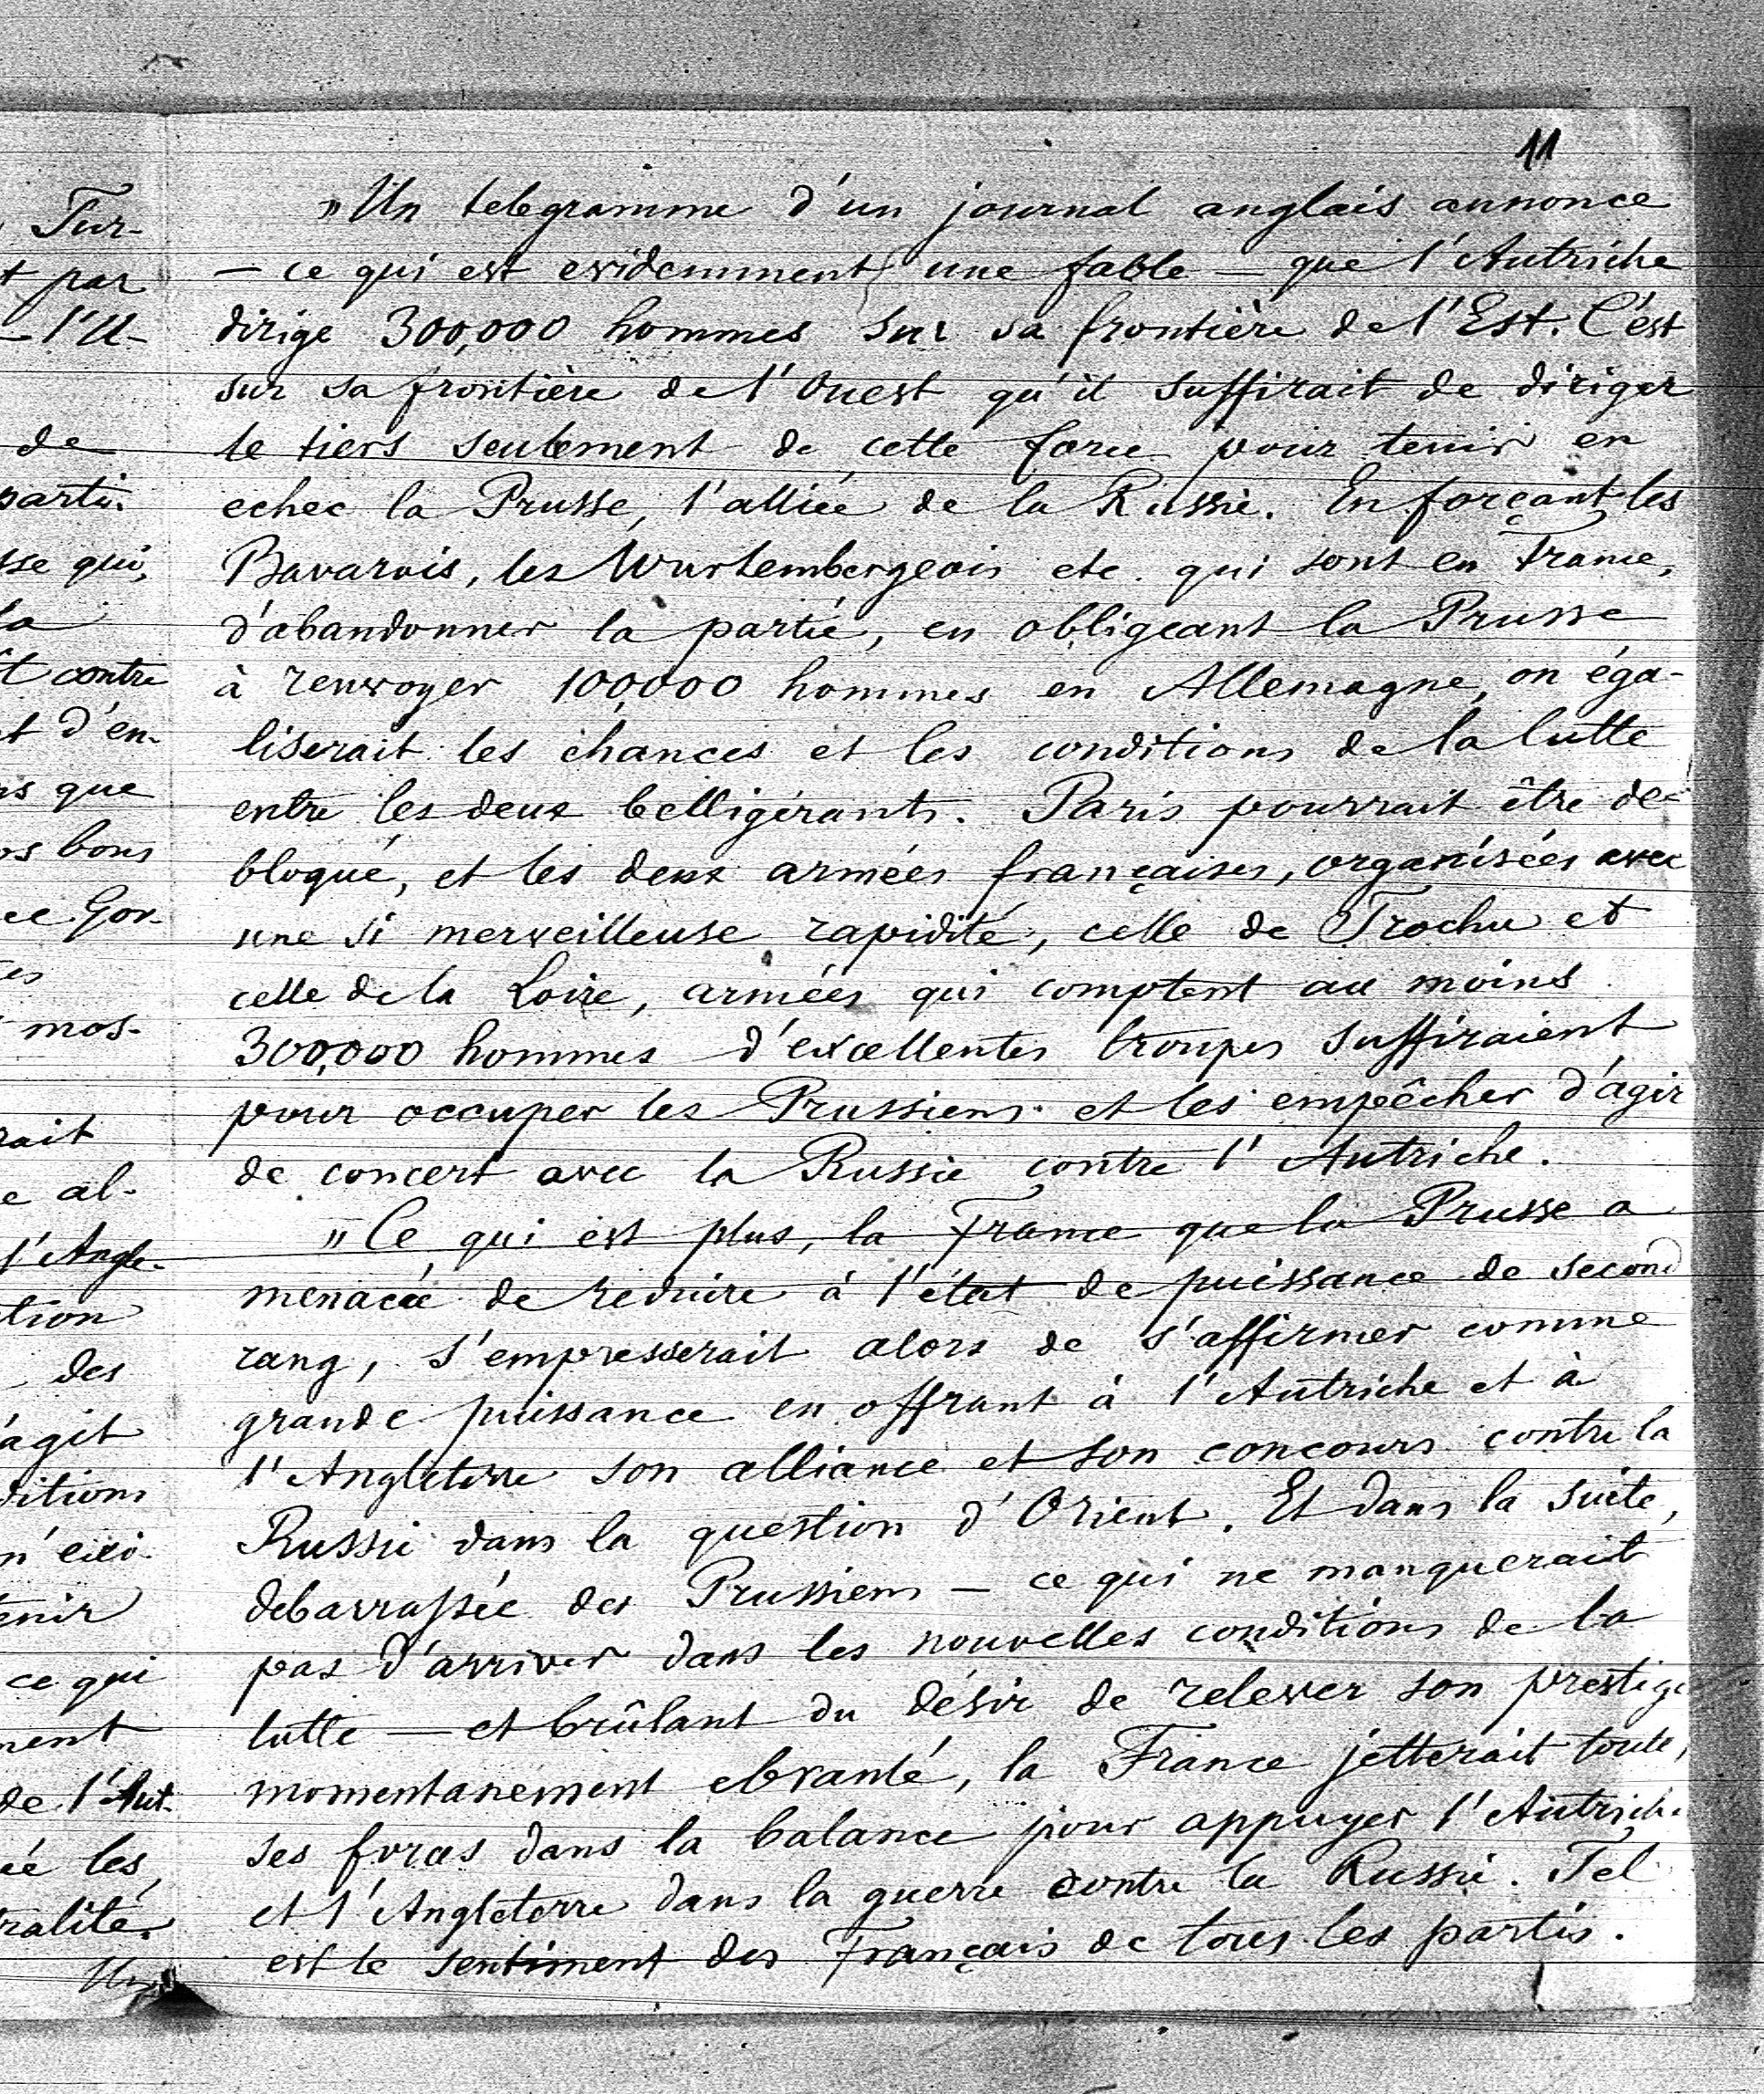 11
„Un telegramme d'un journal anglais annonce
— ce qui est evidemment une fable — que l'Autriche
dirige 300,000 hommes sur sa frontière de l'Est. C'est
sur sa frontière de l'Ouest qu'il suffirait de diriger
le tiers seulement de cette force pour tenir en
echec la Prusse, l'alliée de la Russie. En forçant les
Bavarois, les Wurtembergeois etc. qui sont en France,
d'abandonner la partie, en obligeant la Prusse
à renvoyer 100,000 hommes en Allemagne, on éga-
liserait les chances et les conditions de la lutte
entre les deux belligérants. Paris pourrait être de-
bloqué, et les deux armées françaises, organisées avec
une si merveilleuse rapidité, celle de Trochu et
celle de la Loire, armées qui comptent au moins
300,000 hommes d'excellentes troupes suffiraient
pour occuper les Prussiens et les empêcher d'agir
de concert avec la Russie contre l'Autriche.
„Ce qui est plus, la France que la Prusse a
menacée de reduire à l'état de puissance de second
rang, s'empresserait alors de s'affirmer comme
grande puissance en offrant à l'Autriche et à
l'Angleterre son alliance et son concours contre la
Russie dans la question d'Orient. Et dans la suite,
debarrassée des Prussiens — ce qui ne manquerait
pas d'arriver dans les nouvelles conditions de la
lutte — et brûlant du désir de relever son prestige
momentanement ebranlé, la France jetterait toute,
ses forces dans la balance pour appuyer l'Autriche
et l'Angleterre dans la guerre contre la Russie. Tel
est le sentiment des Français de tous les partis.
Tur-
par
l'U-
de
parti.
sse qui,
la
contre
d'en-
que
bons
Gor-
mos-
rait
al-
l'Angle-
tion
des
agit
ditions
tenir
ce qui
ment
de l'Aut-
les
ralité.
Un